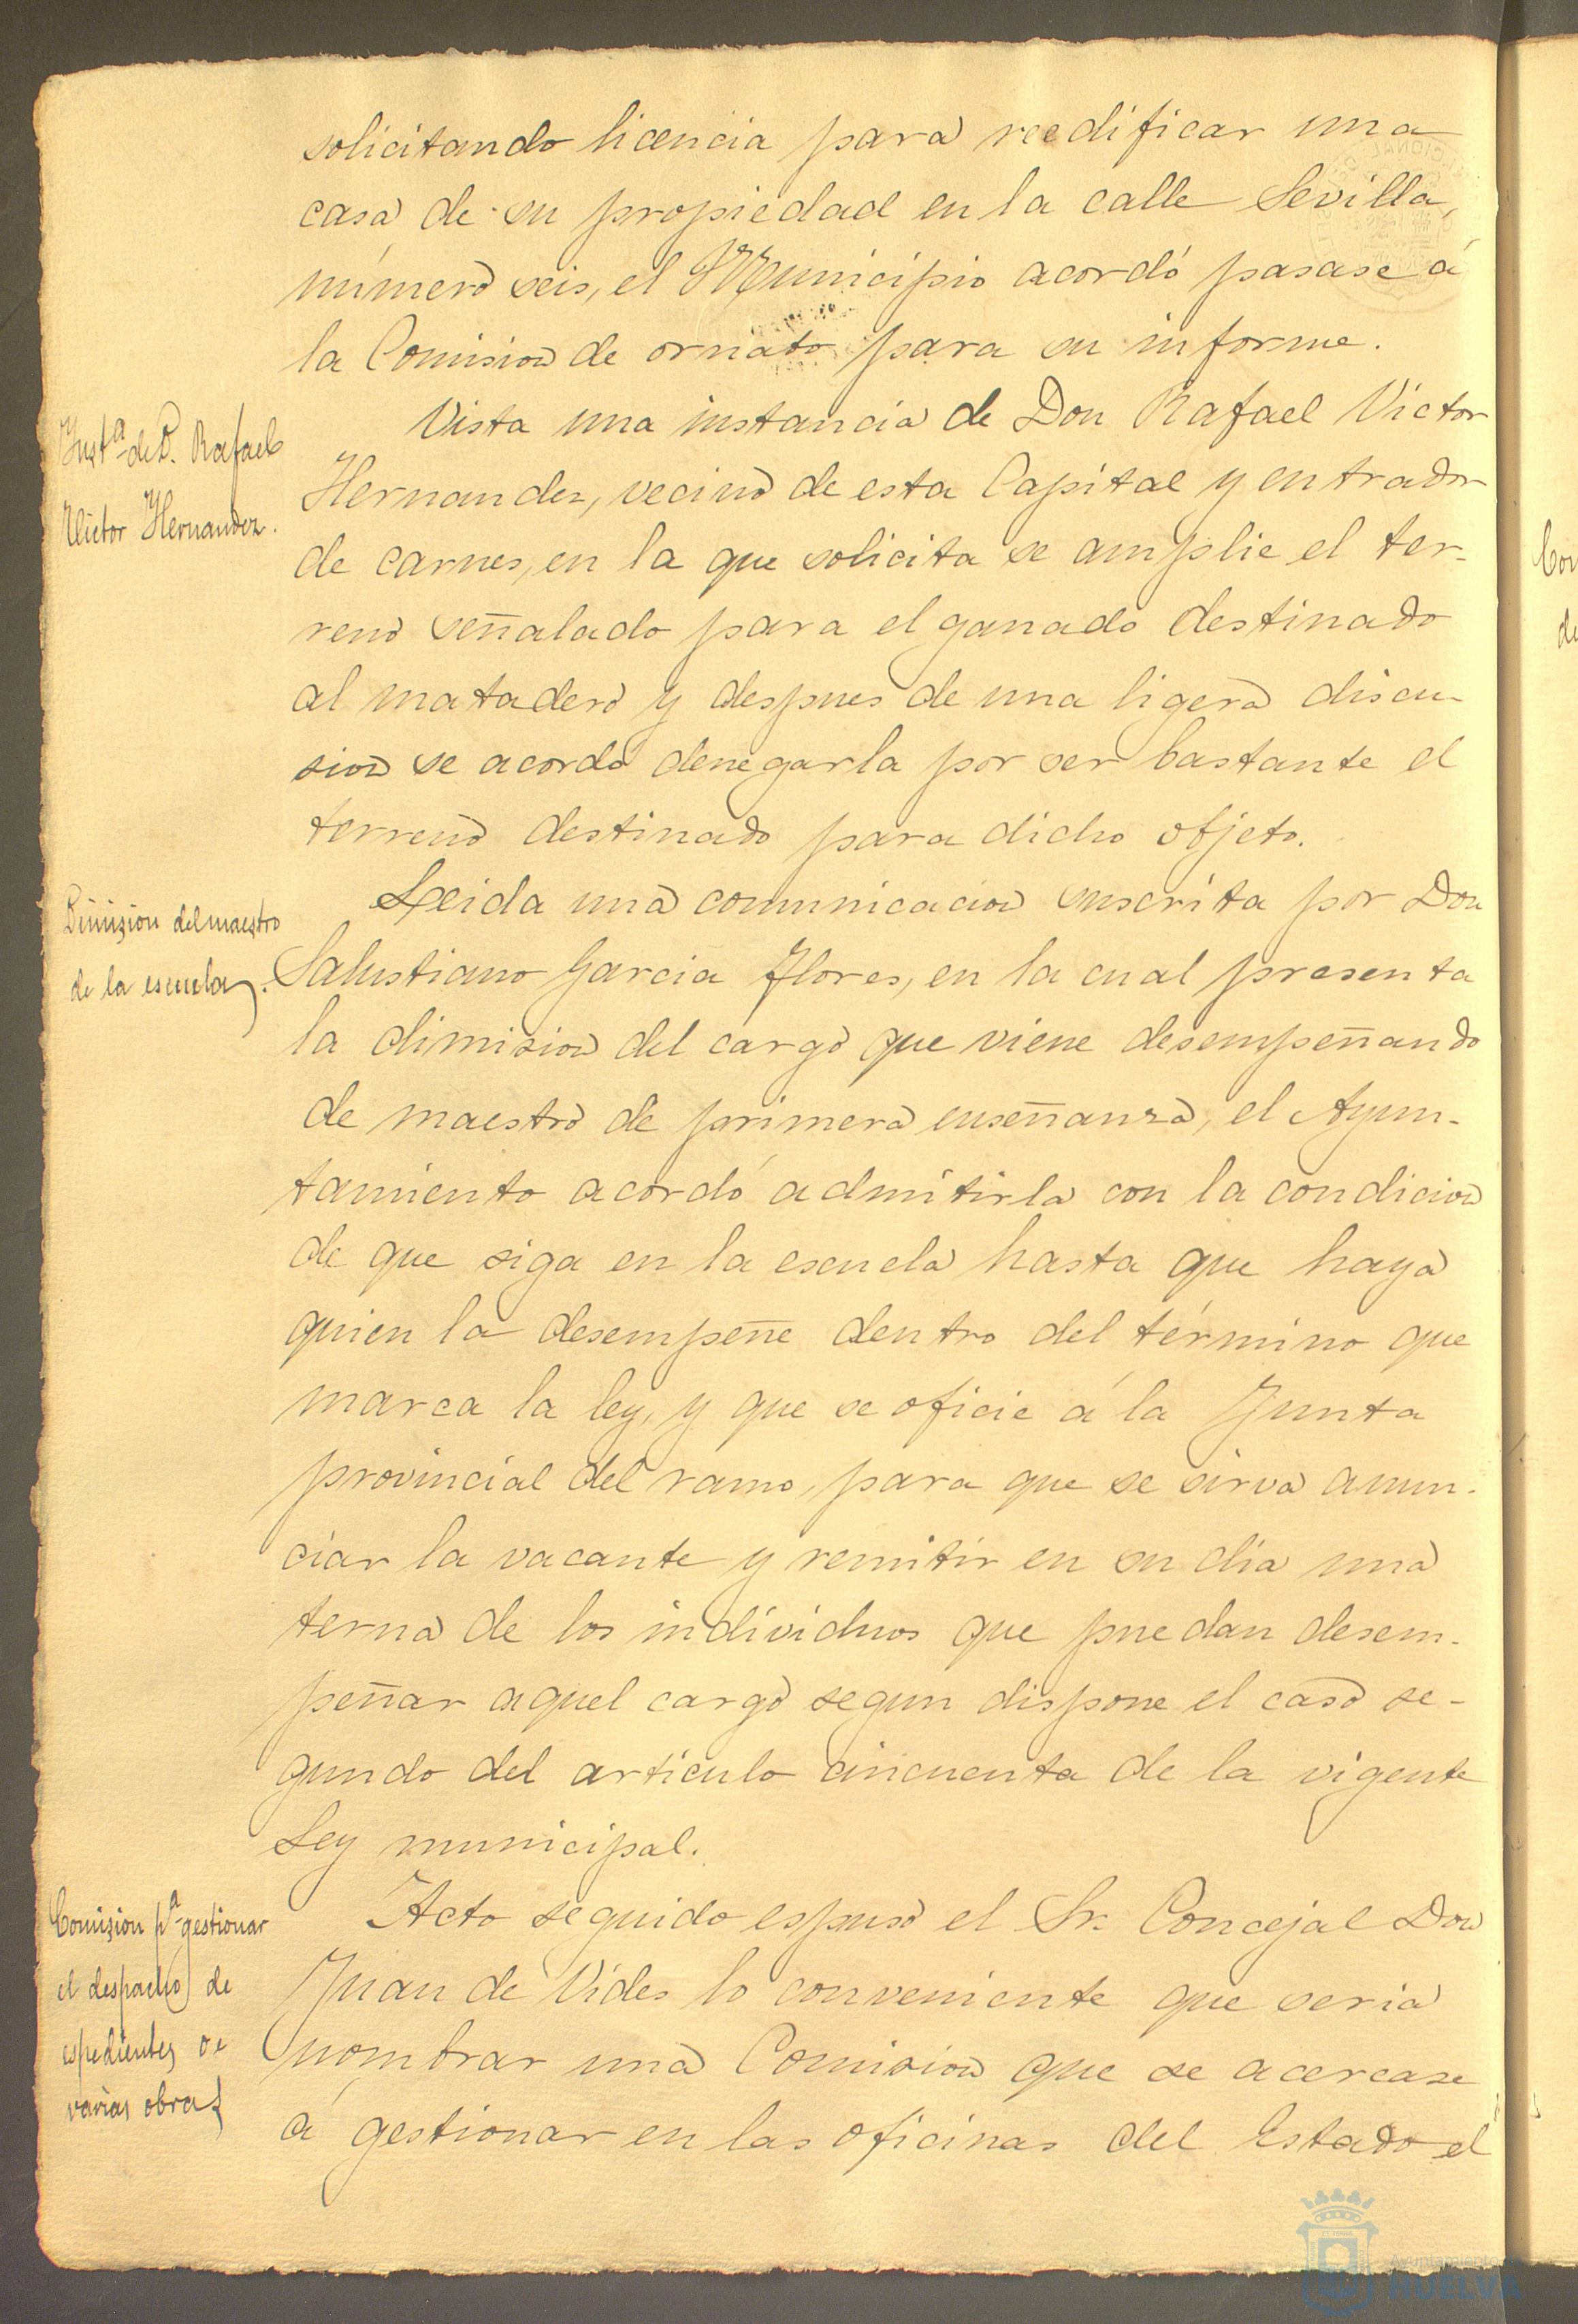 solicitando licencia para reedificar una
casa de su propiedad en la calle Sevilla,
número seis, el Municipio acordó pasase á
la Comision de ornato para su informe.
Inst.ª de D. Rafael
Victor Hernandez.
Vista una instancia de Don Rafael Victor
Hernandez, vecino de esta Capital y entrador
de carnes, en la que solicita se amplie el ter-
reno señalado para el ganado destinado
al matadero y despues de una ligera discu-
sion se acordó denegarla por ser bastante el
terreno destinado para dicho objeto.
Dimision del maestro
de la escuela.
Leida una comunicacion suscrita por Don
Salustiano Garcia Flores, en la cual presenta
la dimision del cargo que viene desempeñando
de maestro de primera enseñanza, el Ayun-
tamiento acordó admitirla con la condicion
de que siga en la escuela hasta que haya
quien la desempeñe dentro del término que
marca la ley, y que se oficie á la Junta
provincial del ramo, para que se sirva anun-
ciar la vacante y remitir en su dia una
terna de los individuos que puedan desem-
peñar aquel cargo segun dispone el caso se-
gundo del artículo cincuenta de la vigente
Ley municipal.
Comision p.ª gestionar
el despacho de
espedientes de
varias obras
Acto seguido espuso el Sr. Concejal Don
Juan de Vides lo conveniente que seria
nombrar una Comision que se acercase
á gestionar en las oficinas del Estado el
Ayuntamiento
HUELVA